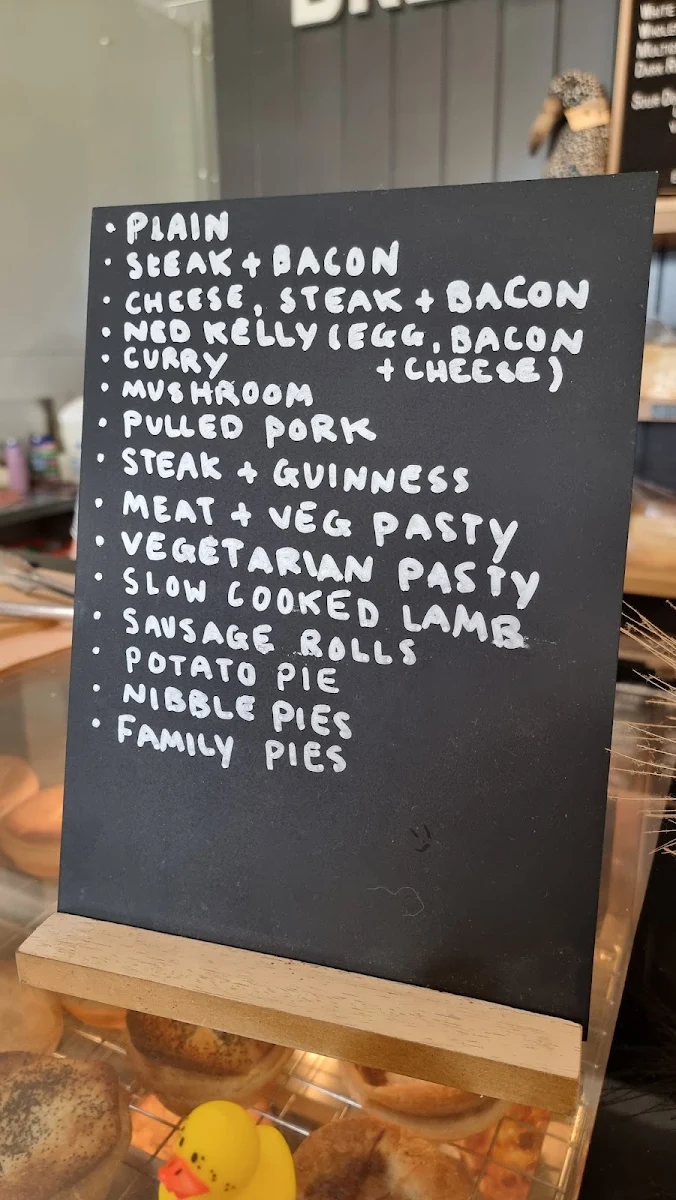 • PLAIN
• STEAK + BACON
• CHEESE, STEAK + BACON
• NED KELLY (EGG, BACON
+ CHEESE)
• CURRY
• MUSHROOM
• PULLED PORK
• STEAK + GUINNESS
• MEAT + VEG PASTY
• VEGETARIAN PASTY
• SLOW COOKED LAMB
• SAUSAGE ROLLS
• POTATO PIE
• NIBBLE PIES
• FAMILY PIES